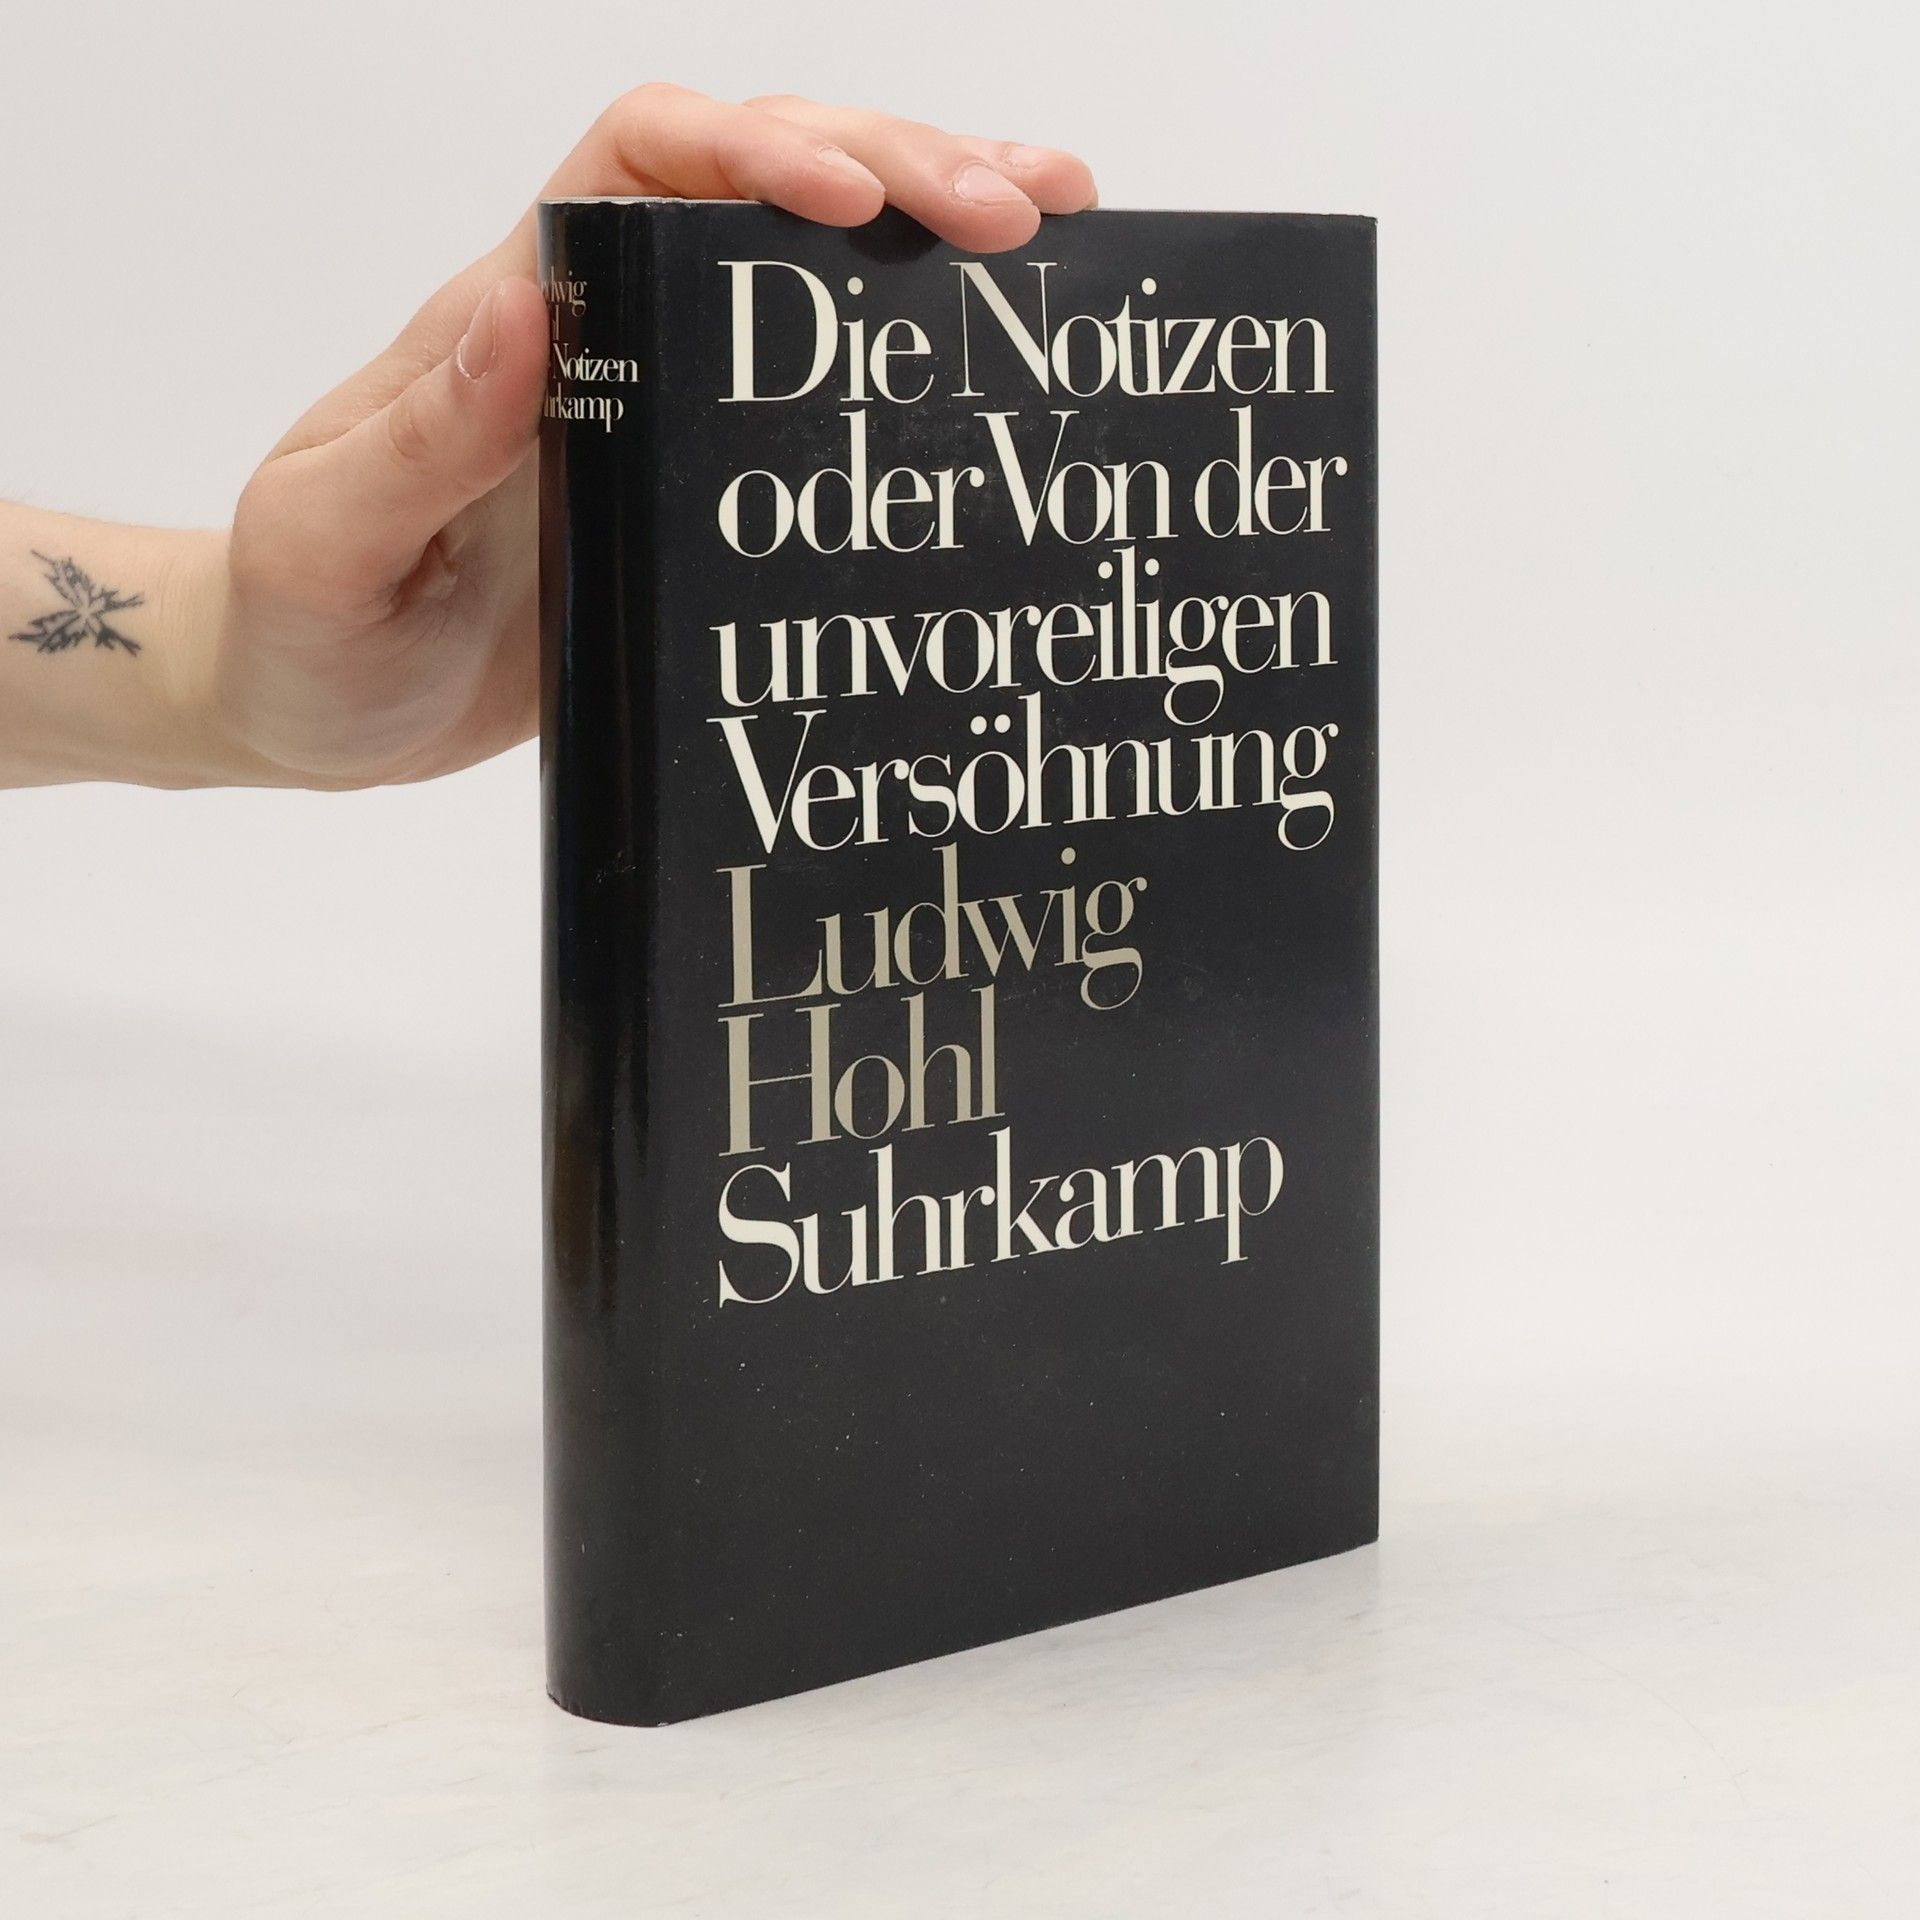 Die Notizen
oder Von der
unvoreiligen
Versöhnung
Ludwig
Hohl
Suhrkamp
Notizen